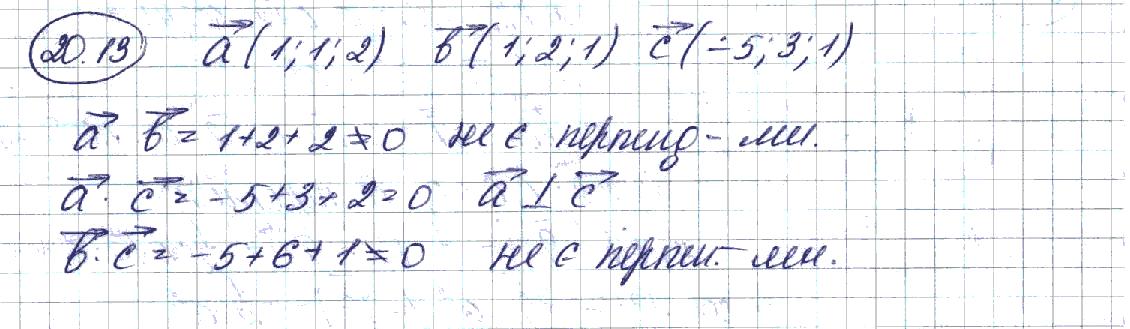 20.13 a⃗(1;1;2) b⃗(1;2;1) c⃗(-5;3;1)
a⃗·b⃗=1+2+2≠0 не є перпенд-ми.
a⃗·c⃗=-5+3+2=0 a⃗⊥c⃗
b⃗·c⃗=-5+6+1≠0 не є перпен-ми.